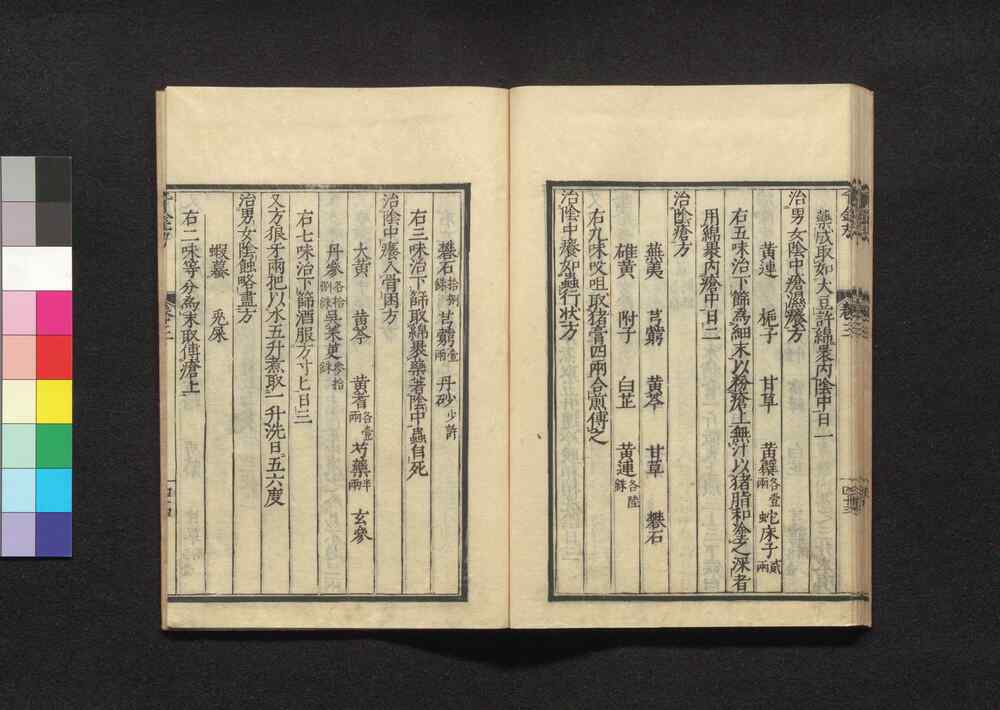 藥成取如大豆許綿裹内陰中日一
治男女陰中瘡濕癢方
黃連 梔子 甘草 黃蘗各壹兩 蛇床子貳兩
右五味治下篩爲細末以粉瘡上無汁以猪脂和塗之深者
用綿裹内瘡中日二
治陰瘡方
蕪荑 芎藭 黃芩 甘草 礬石
雄黃 附子 白芷 黃連各陸銖
右九味㕮咀取猪膏四兩合煎傅之
治陰中癢如蟲行狀方
礬石拾捌銖 芎藭壹兩 丹砂少許
右三味治下篩取綿裹藥著陰中蟲自死
治陰中癢入骨困方
大黃 黃芩 黃耆各壹兩 芍藥半兩 玄參
丹參各拾捌銖 吳茱萸參拾銖
右七味治下篩酒服方寸匕日三
又方狼牙兩把以水五升煮取一升洗日五六度
治男女陰蝕略盡方
蝦蟇 兎屎
右二味等分爲末取傅瘡上